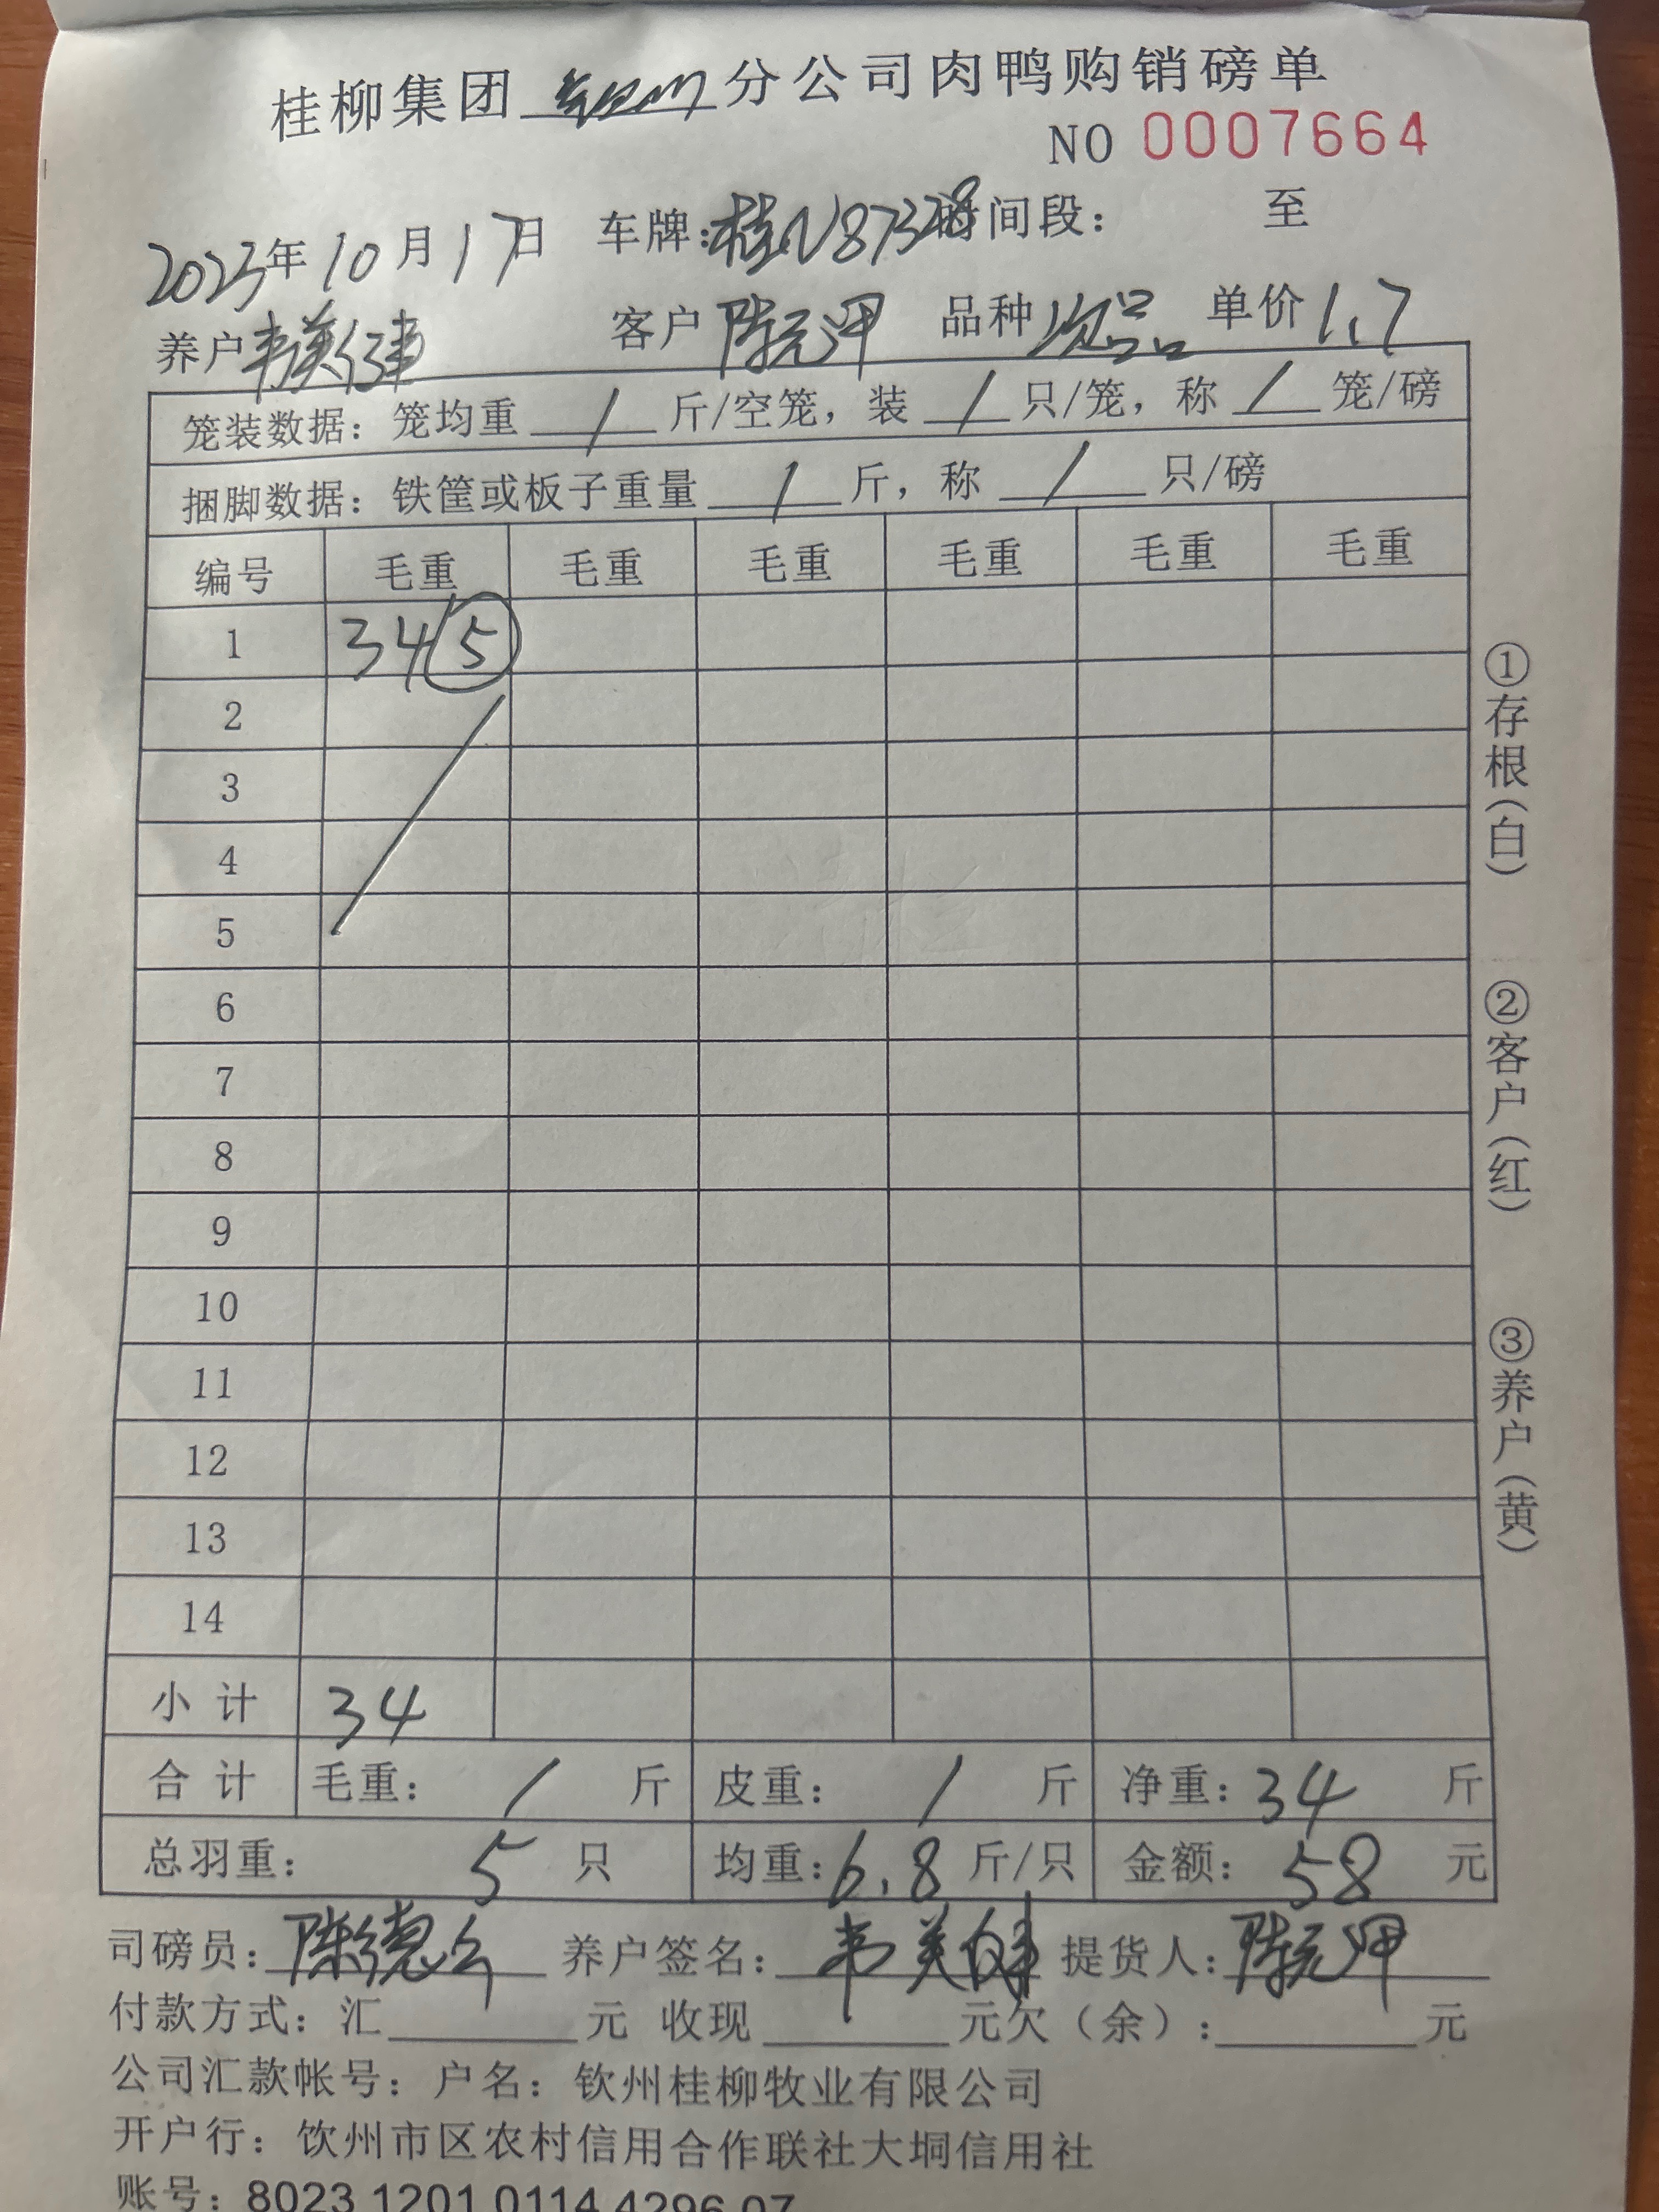 桂柳集团 分公司肉鸭购销磅单
NO 0007664
2023年10月17日 车牌:桂N87328 时间段: 至
养户韦美健 客户 陈元甲 品种 次品 单价1.7
笼装数据: 笼均重 / 斤/空笼, 装 / 只/笼, 称 / 笼/磅
捆脚数据: 铁筐或板子重量 / 斤, 称 / 只/磅
编号 毛重 毛重 毛重 毛重 毛重 毛重
1 34 ⑤
2
3
4
5
6
7
8
9
10
11
12
13
14
小计 34
合计 毛重: / 斤 皮重: / 斤 净重: 34 斤
总羽重: 5 只 均重: 6.8 斤/只 金额: 58 元
司磅员: 陈德 养户签名: 韦美健 提货人: 陈元甲
付款方式: 汇 元 收现 元欠（余）: 元
公司汇款帐号: 户名: 钦州桂柳牧业有限公司
开户行: 饮州市区农村信用合作联社大垌信用社
账号: 8023 1201 0114 4296 07
①存根(白)
②客户(红)
③养户(黄)